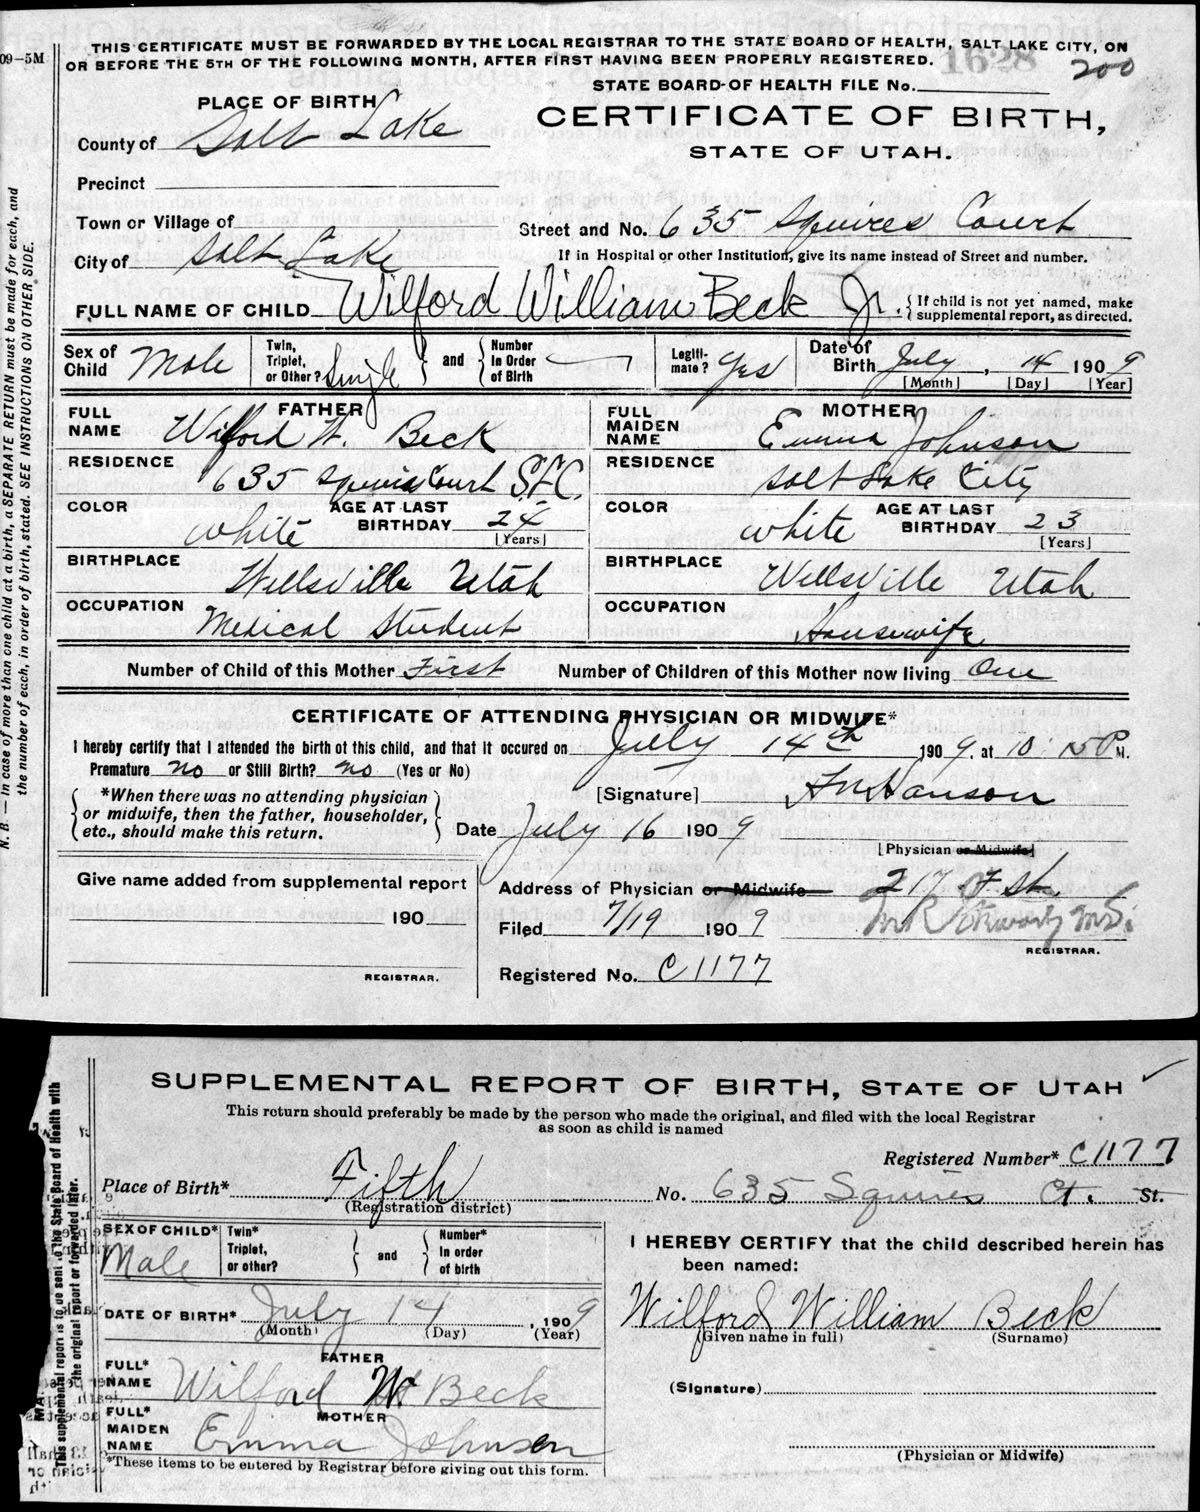 09—5M
THIS CERTIFICATE MUST BE FORWARDED BY THE LOCAL REGISTRAR TO THE STATE BOARD OF HEALTH, SALT LAKE CITY, ON
OR BEFORE THE 5TH OF THE FOLLOWING MONTH, AFTER FIRST HAVING BEEN PROPERLY REGISTERED.
1628
200
STATE BOARD OF HEALTH FILE No.
PLACE OF BIRTH
CERTIFICATE OF BIRTH,
STATE OF UTAH.
County of Salt Lake
Precinct
Town or Village of
Street and No. 635 Squires Court
City of Salt Lake
If in Hospital or other Institution, give its name instead of Street and number.
FULL NAME OF CHILD Wilford William Beck Jr. { If child is not yet named, make supplemental report, as directed.
Sex of Child Male
Twin, Triplet, or Other? Single } and { Number in Order of Birth
Legitimate? Yes
Date of Birth July, 14 1909
[Month] [Day] [Year]
FATHER
FULL NAME Wilford W. Beck
RESIDENCE 635 Squires Court S.L.C.
COLOR white AGE AT LAST BIRTHDAY 24
[Years]
BIRTHPLACE Wellsville Utah
OCCUPATION Medical Student
MOTHER
FULL MAIDEN NAME Emma Johnson
RESIDENCE Salt Lake City
COLOR white AGE AT LAST BIRTHDAY 23
[Years]
BIRTHPLACE Wellsville Utah
OCCUPATION Housewife
Number of Child of this Mother First Number of Children of this Mother now living One
CERTIFICATE OF ATTENDING PHYSICIAN OR MIDWIFE*
I hereby certify that I attended the birth of this child, and that it occured on July 14th 1909, at 10 15 P M.
Premature no or Still Birth? no (Yes or No)
{ *When there was no attending physician or midwife, then the father, householder, etc., should make this return. }
[Signature] Hanson
Date July 16 1909
[Physician or Midwife]
Give name added from supplemental report
190
REGISTRAR.
Address of Physician or Midwife 217 F St.
Filed 7/19 1909
M.D.
REGISTRAR.
Registered No. C1177
N. B.—In case of more than one child at a birth, a SEPARATE RETURN must be made for each, and
the number of each, in order of birth, stated. SEE INSTRUCTIONS ON OTHER SIDE.
SUPPLEMENTAL REPORT OF BIRTH, STATE OF UTAH
This return should preferably be made by the person who made the original, and filed with the local Registrar
as soon as child is named
Registered Number* C1177
Place of Birth* Fifth No. 635 Squires Ct. St.
(Registration district)
SEX OF CHILD* Male
Twin* Triplet, or other? } and { Number* In order of birth
DATE OF BIRTH* July 14, 1909
(Month) (Day) (Year)
FATHER
FULL* NAME Wilford W Beck
MOTHER
FULL* MAIDEN NAME Emma Johnson
*These items to be entered by Registrar before giving out this form.
I HEREBY CERTIFY that the child described herein has
been named:
Wilford William Beck
(Given name in full) (Surname)
(Signature)
(Physician or Midwife)
This supplemental report is to be sent to the State Board of Health with
the original report or forwarded later.